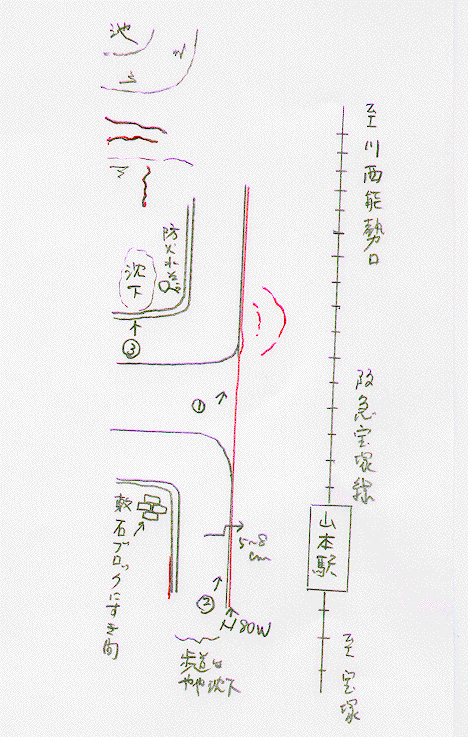 池
至川西能勢口
防火水そう
沈下
③
①
阪急宝塚線
敷石ブロックにすき間
5~8
cm
山本駅
②
N80W
歩道は
やや沈下
至宝塚